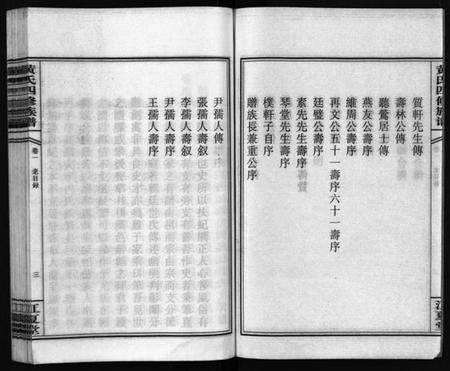 黃氏四修族譜
質軒先生傳
壽林公傳
聽鶯居士傳
燕友公壽序
維周公壽序
再文公五十一壽序六十一壽序
廷璧公壽序
素先先生壽序
琴堂先生壽序
樸軒子自序
贈族長兼重公序
尹孺人傳
張孺人壽叙
李孺人壽叙
尹孺人壽序
王孺人壽序
黃氏四修族譜
卷一 老目錄
三
江夏堂